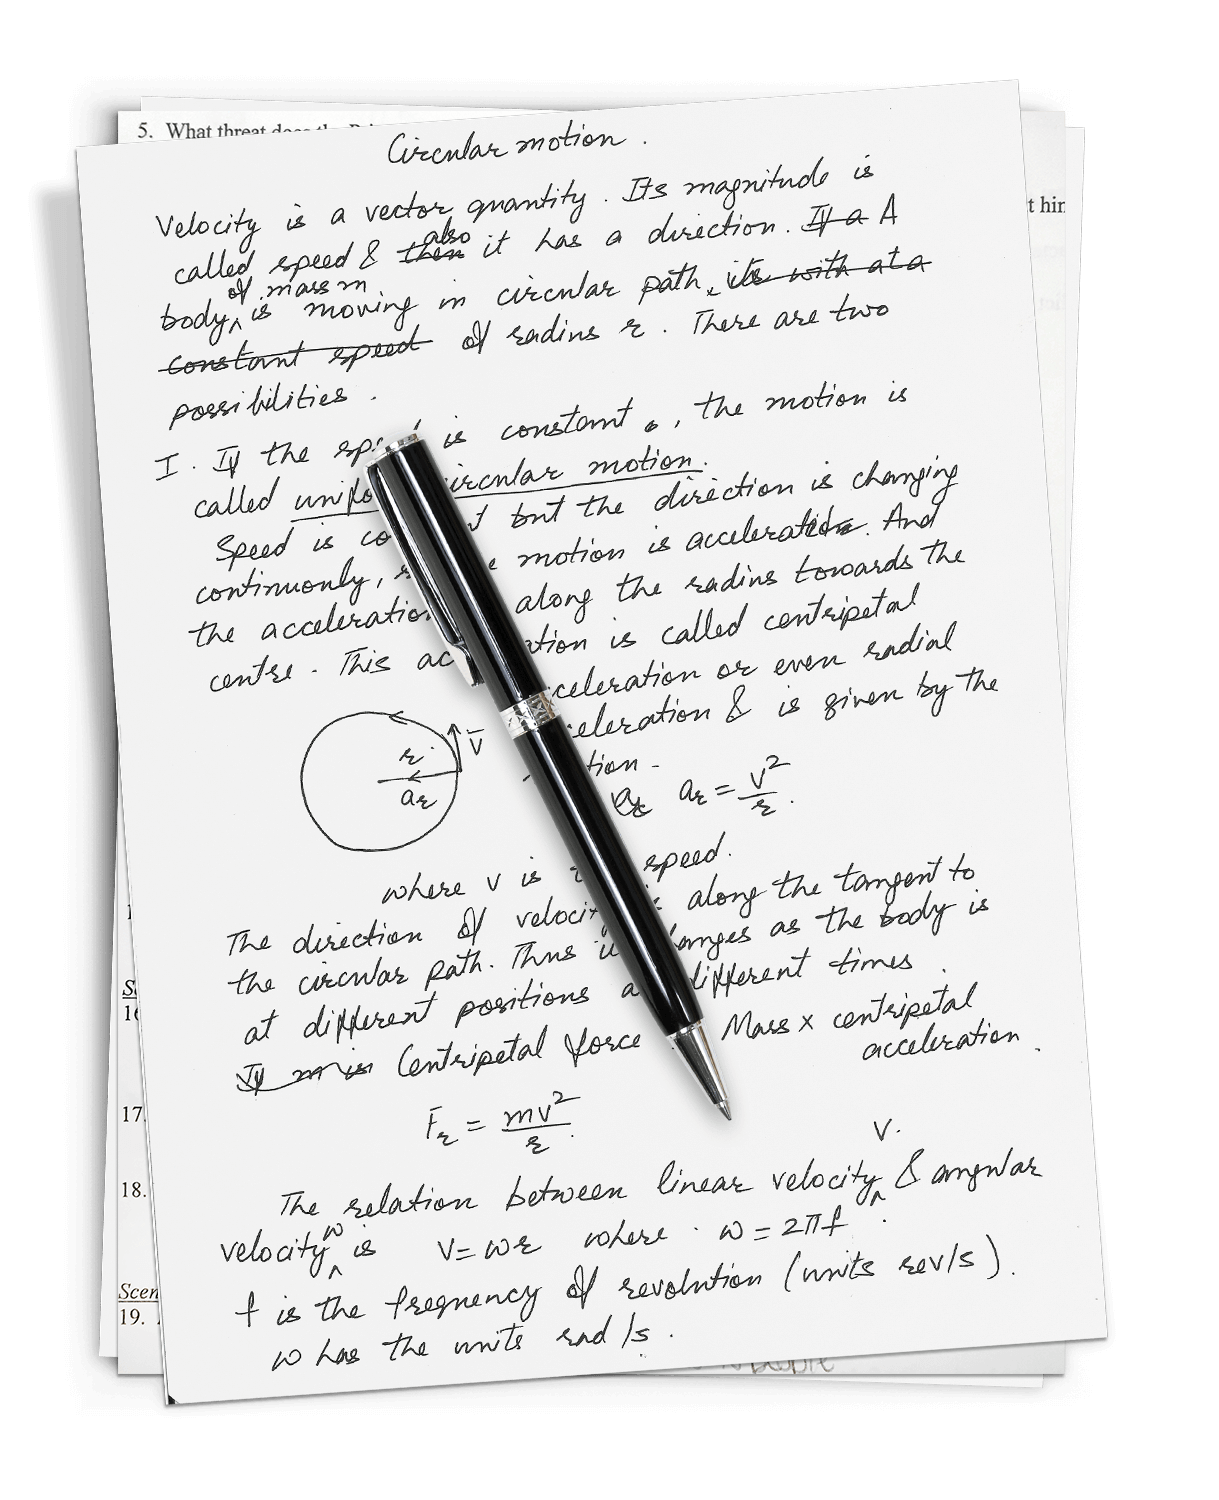 5. What threat does the
Circular motion.
t hin
Velocity is a vector quantity. Its magnitude is
called speed & then also it has a direction. If a A
body of mass m is moving in circular path, its with at a
constant speed of radius r. There are two
possibilities.
I. If the is constant, the motion is
called circular motion.
Speed is but the direction is changing
continuonly, motion is acceleration. And
the along the radius towards the
centre. This is called centripetal
or even radial
& is given by the
r
v̄
aᵣ
aᵣ = v²/r.
where v is speed.
The direction of along the tangent to
the circular path. Thus as the body is
at different positions different times.
If m is Centripetal force Mass x centripetal
acceleration.
Fᵣ = mv²/r.
The relation between linear velocity v. & angular
velocity w is v = wr where w = 2πf.
f is the frequency of revolution (units rev/s).
w has the units rad/s.
17.
18.
Scen
19.